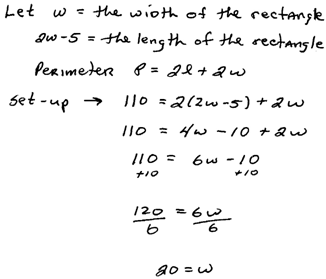 Let w = the width of the rectangle
2w-5 = the length of the rectangle
Perimeter P = 2l + 2w
set-up → 110 = 2(2w-5) + 2w
110 = 4w - 10 + 2w
110 = 6w - 10
+10 +10
120 = 6w
6 6
20 = w